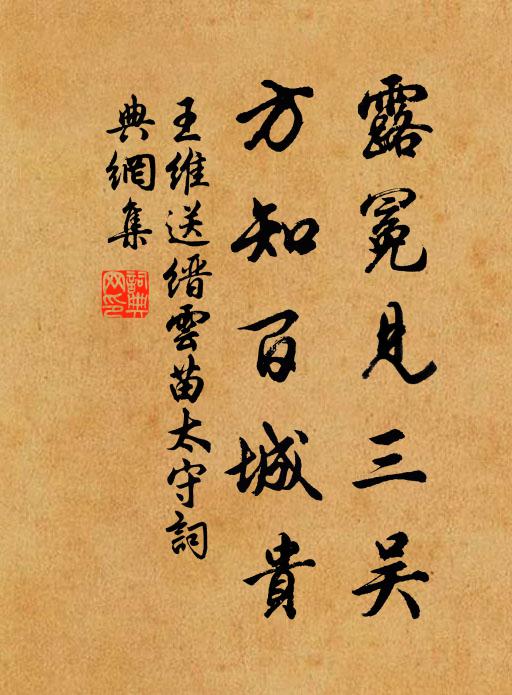 露冕見三吴
方知百城貴
王維送缙雲苗太守詞
典網集
詞典網印